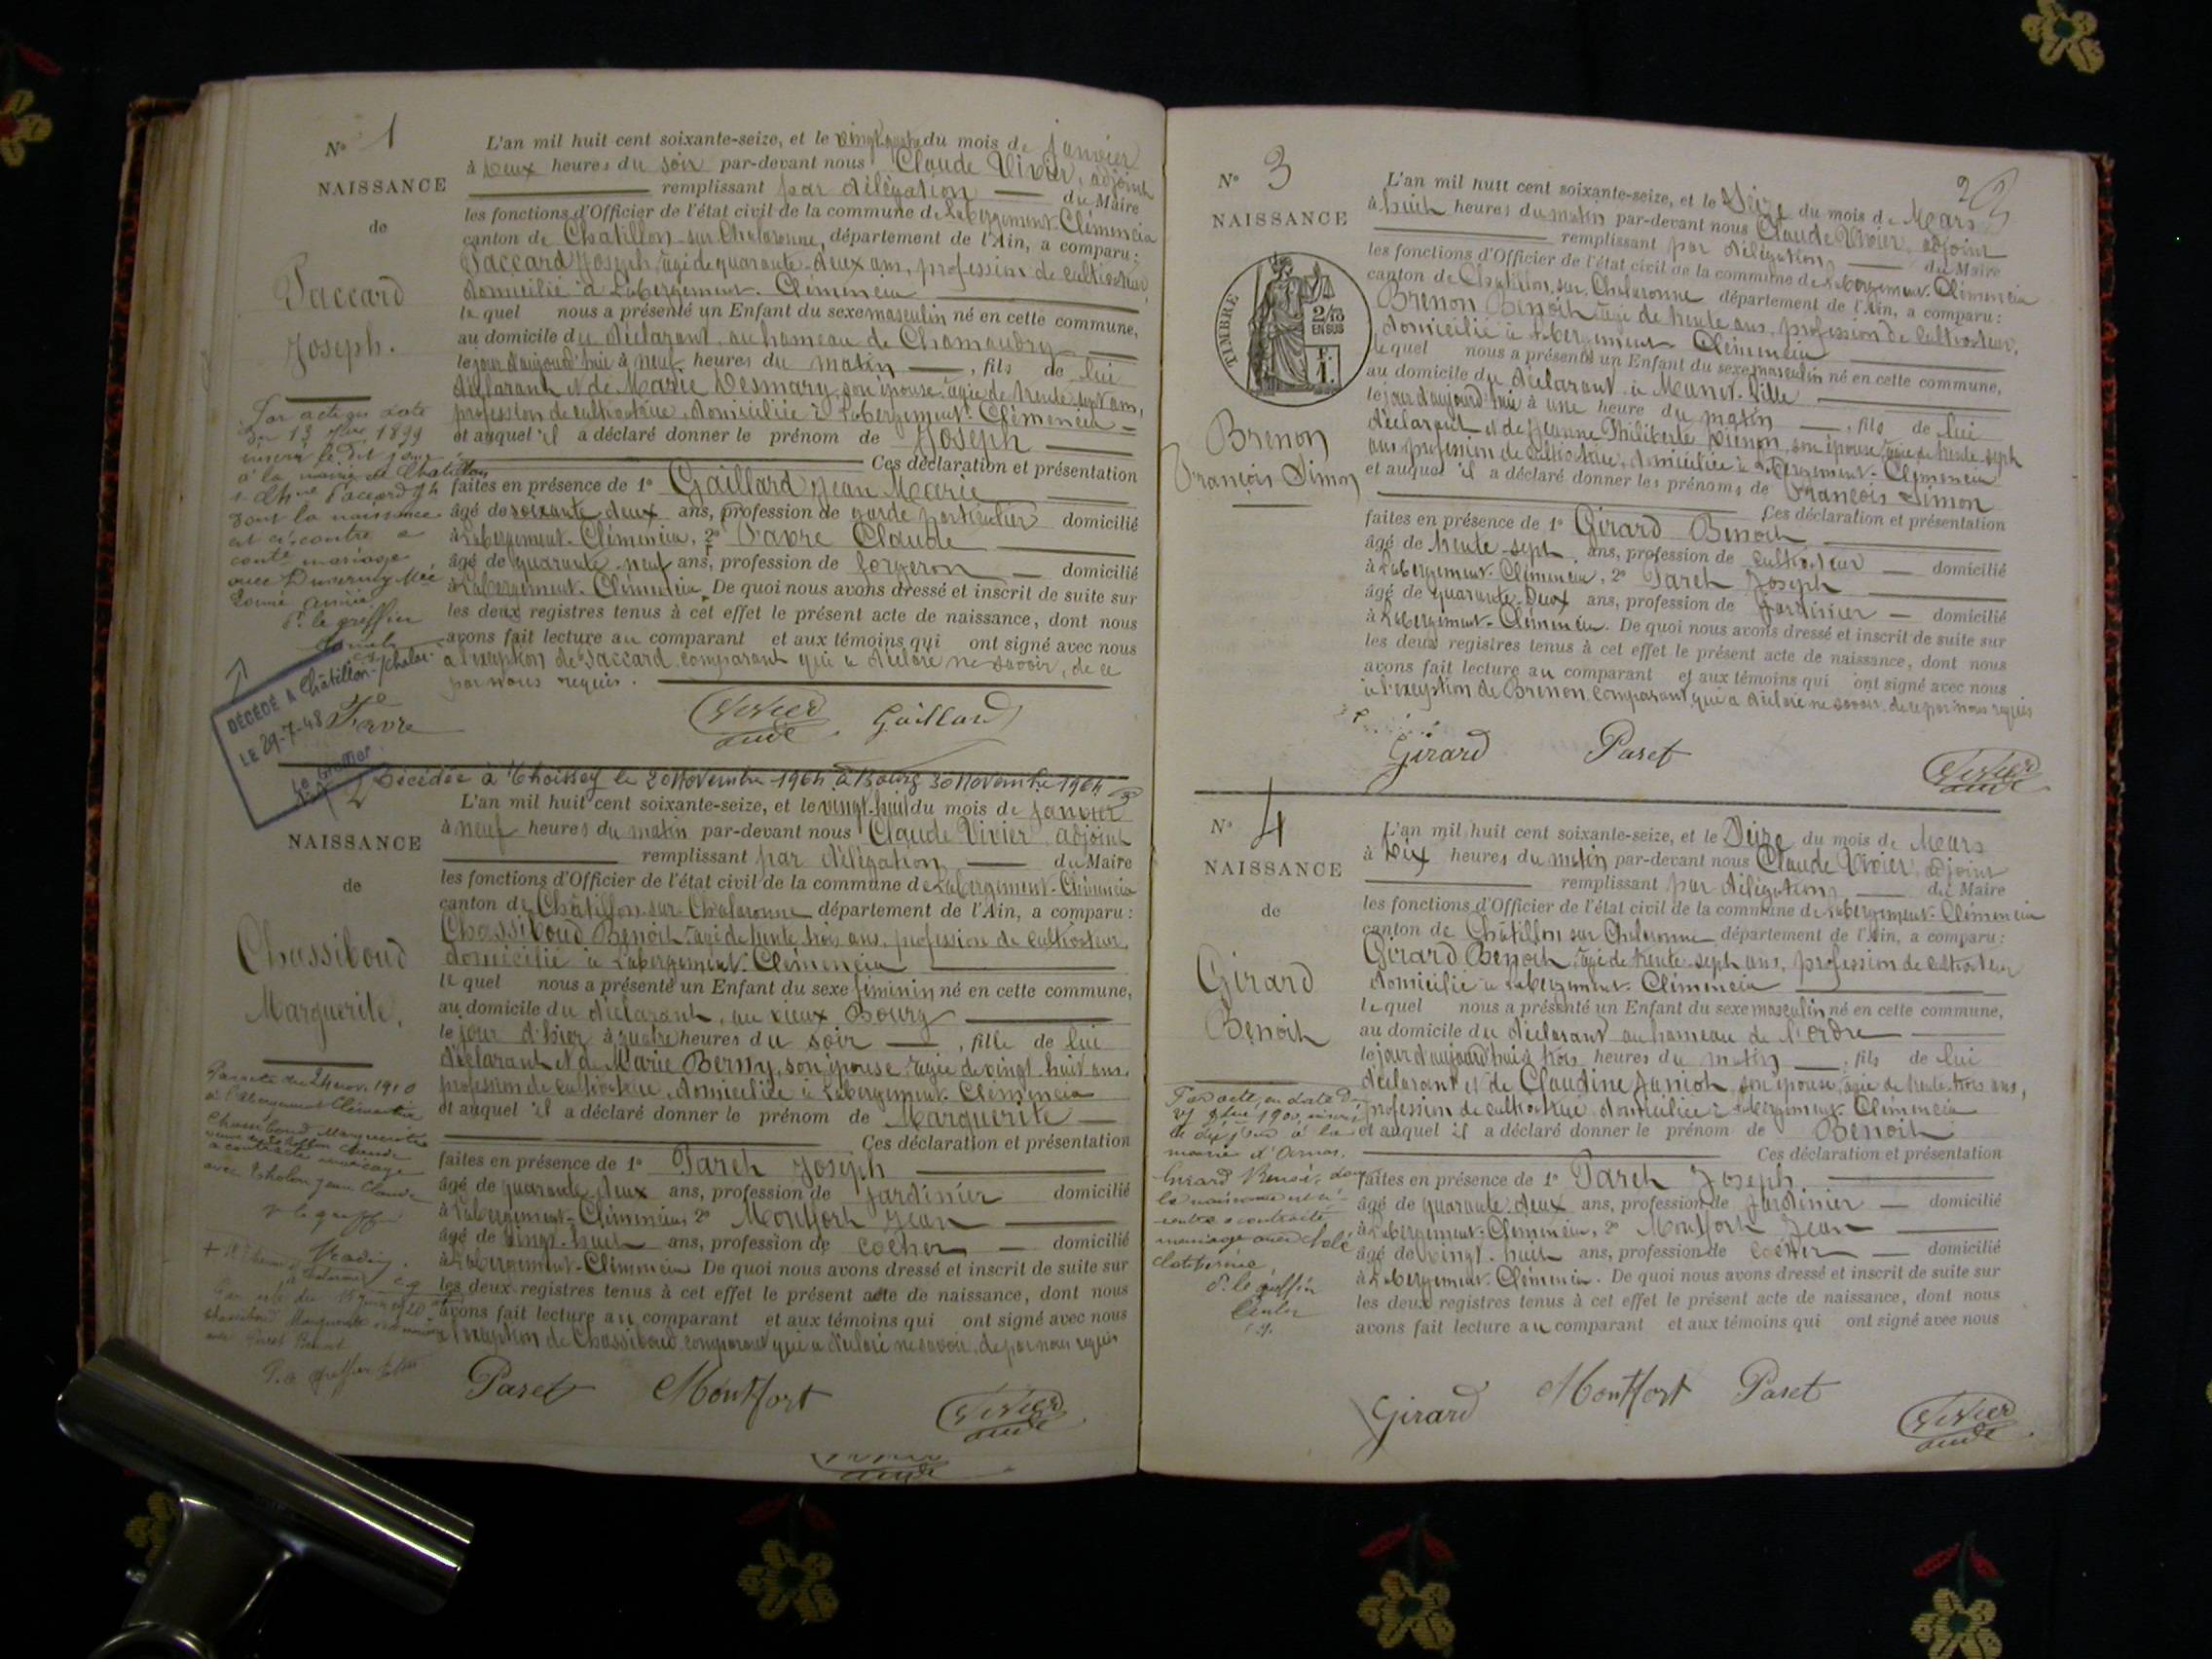 N° 1
NAISSANCE
de
Paccard
Joseph.
L'an mil huit cent soixante-seize, et le du mois de janvier
à Deux heures du soir par-devant nous Claude Vivier, adjoint
remplissant par délégation du Maire
les fonctions d'Officier de l'état civil de la commune de Labergement-Clémencia
canton de Chatillon-sur-Chalaronne, département de l'Ain, a comparu :
Paccard Joseph, âgé de quarante-deux ans, profession de cultivateur,
domicilié à Labergement-Clémencia
lequel nous a présenté un Enfant du sexe masculin né en cette commune,
au domicile du déclarant, au hameau de Chamaudry
le jour d'aujourd'hui à neuf heures du matin , fils de lui
déclarant et de Marie Desmary, son épouse, âgée de trente-sept ans,
profession de cultivatrice, domiciliée à Labergement-Clémencia
et auquel il a déclaré donner le prénom de Joseph
Ces déclaration et présentation
faites en présence de 1° Gaillard Jean Marie
âgé de soixante deux ans, profession de garde particulier domicilié
à Labergement-Clémencia, 2° Favre Claude
âgé de quarante-neuf ans, profession de forgeron domicilié
à Labergement-Clémencia. De quoi nous avons dressé et inscrit de suite sur
les deux registres tenus à cet effet le présent acte de naissance, dont nous
avons fait lecture au comparant et aux témoins qui ont signé avec nous
à l'exception de Paccard, comparant qui a déclaré ne savoir, de ce
par nous requis.
Par acte en date
du 13 1899
inscrit le dit jour
à la mairie de Chatillon
s Ch ne Paccard Jh
dont la naissance
est ci-contre a
conté mariage
avec Duvernay Mie
P. le greffier
DÉCÉDÉ A Châtillon-s-Chalar.
LE 29-7-48
Le Greffier
Favre
Vivier
Gaillard
Décédée à Thoissey le 20 Novembre 1964 à Bourg 30 Novembre 1964
N° 2
NAISSANCE
de
Chassiboud
Marguerite.
L'an mil huit cent soixante-seize, et le vingt-huit du mois de janvier
à neuf heures du matin par-devant nous Claude Vivier, adjoint
remplissant par délégation du Maire
les fonctions d'Officier de l'état civil de la commune de Labergement-Clémencia
canton de Châtillon-sur-Chalaronne département de l'Ain, a comparu :
Chassiboud Benoit, âgé de trente trois ans, profession de cultivateur,
domicilié à Labergement-Clémencia
lequel nous a présenté un Enfant du sexe féminin né en cette commune,
au domicile du déclarant, au vieux Bourg
le jour d'hier à quatre heures du soir , fille de lui
déclarant et de Marie Berny, son épouse, âgée de vingt-huit ans,
profession de cultivatrice, domiciliée à Labergement-Clémencia
et auquel il a déclaré donner le prénom de Marguerite
Ces déclaration et présentation
faites en présence de 1° Paret Joseph
âgé de quarante deux ans, profession de jardinier domicilié
à Labergement-Clémencia, 2° Montfort Jean
âgé de vingt-huit ans, profession de cocher domicilié
à Labergement-Clémencia De quoi nous avons dressé et inscrit de suite sur
les deux registres tenus à cet effet le présent acte de naissance, dont nous
avons fait lecture au comparant et aux témoins qui ont signé avec nous
à l'exception de Chassiboud, comparant qui a déclaré ne savoir, de par nous requis
24 nov. 1910
à l'Abergement Clémencia
Chassiboud Marguerite
a contracté mariage
avec Tholon Jean Claude
Paret
Montfort
Vivier
N° 3
NAISSANCE
TIMBRE
2/10
EN SUS
1 F.
Brenon
François Simon
L'an mil huit cent soixante-seize, et le Seize du mois de Mars
à huit heures du matin par-devant nous Claude Vivier, adjoint
remplissant par délégation du Maire
les fonctions d'Officier de l'état civil de la commune de Labergement-Clémencia
canton de Chatillon-sur-Chalaronne département de l'Ain, a comparu :
Brenon Benoit, âgé de trente ans, profession de cultivateur,
domicilié à Labergement-Clémencia
lequel nous a présenté un Enfant du sexe masculin né en cette commune,
au domicile du déclarant, à
le jour d'aujourd'hui à une heure du matin , fils de lui
déclarant et de Jeanne Philiberte son épouse, âgée de trente-sept
ans, profession de cultivatrice, domiciliée à Labergement-Clémencia
et auquel il a déclaré donner les prénoms de François Simon
Ces déclaration et présentation
faites en présence de 1° Girard Benoit
âgé de trente-sept ans, profession de cultivateur domicilié
à Labergement-Clémencia, 2° Paret Joseph
âgé de quarante-deux ans, profession de jardinier domicilié
à Labergement-Clémencia. De quoi nous avons dressé et inscrit de suite sur
les deux registres tenus à cet effet le présent acte de naissance, dont nous
avons fait lecture au comparant et aux témoins qui ont signé avec nous
à l'exception de Brenon, comparant, qui a déclaré ne savoir, de ce par nous requis
Girard
Paret
Vivier
N° 4
NAISSANCE
de
Girard
Benoit
L'an mil huit cent soixante-seize, et le Seize du mois de Mars
à Dix heures du matin par-devant nous Claude Vivier, adjoint
remplissant par délégation du Maire
les fonctions d'Officier de l'état civil de la commune de Labergement-Clémencia
canton de Châtillon sur Chalaronne département de l'Ain, a comparu :
Girard Benoit, âgé de trente-sept ans, profession de cultivateur
domicilié à Labergement-Clémencia
lequel nous a présenté un Enfant du sexe masculin né en cette commune,
au domicile du déclarant au hameau de l'ordre
le jour d'aujourd'hui à trois heures du matin , fils de lui
déclarant et de Claudine Janiot, son épouse, âgée de trente-trois ans,
profession de cultivatrice domiciliée à Labergement-Clémencia
et auquel il a déclaré donner le prénom de Benoit
Ces déclaration et présentation
faites en présence de 1° Paret Joseph.
âgé de quarante-deux ans, profession de jardinier domicilié
à Labergement-Clémencia, 2° Montfort Jean
âgé de vingt-huit ans, profession de cocher domicilié
à Labergement-Clémencia. De quoi nous avons dressé et inscrit de suite sur
les deux registres tenus à cet effet le présent acte de naissance, dont nous
avons fait lecture au comparant et aux témoins qui ont signé avec nous
Par acte en date du
1900, inscrit
le dit jour à la
mairie d'
Girard Benoit, dont
la naissance est ci-
contre a contracté
mariage avec
P. le greffier
Girard
Montfort
Paret
Vivier